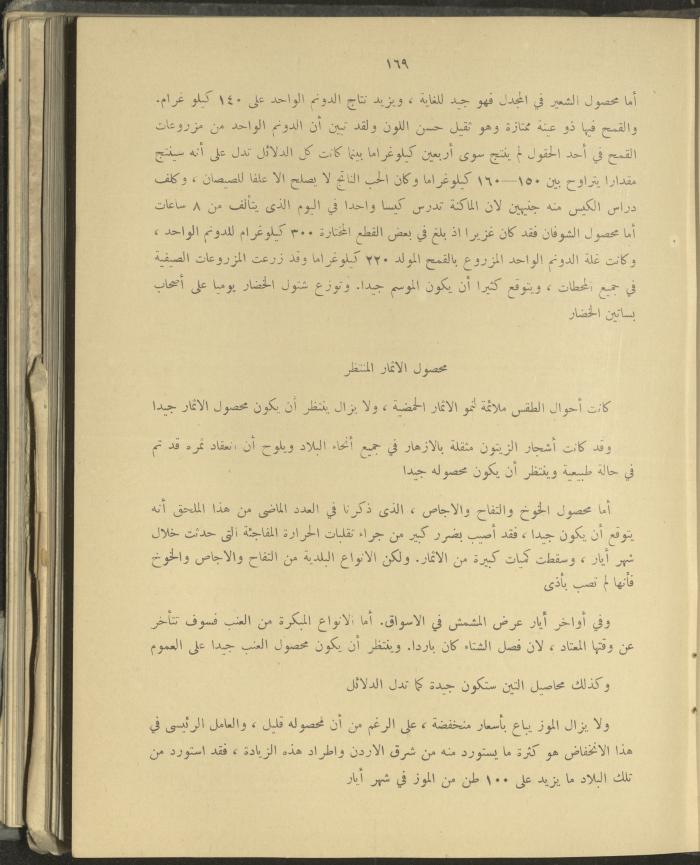 ١٦٩
أما محصول الشعير في المجدل فهو جيد للغاية ، ويزيد نتاج الدونم الواحد على ١٤٠ كيلو غرام.
والقمح فيها ذو عينة ممتازة وهو ثقيل حسن اللون ولقد تبين أن الدونم الواحد من مزروعات
القمح في أحد الحقول لم ينتج سوى أربعين كيلوغراما بينما كانت كل الدلائل تدل على أنه سينتج
مقدارا يتراوح بين ١٥٠—١٦٠ كيلوغراما وكان الحب الناتج لا يصلح الا علفا للصيصان ، وكلف
دراس الكيس منه جنيهين لان الماكنة تدرس كيسا واحدا في اليوم الذى يتألف من ٨ ساعات
أما محصول الشوفان فقد كان غزيرا اذ بلغ في بعض القطع المختارة ٣٠٠ كيلوغرام للدونم الواحد ،
وكانت غلة الدونم الواحد المزروع بالقمح المولد ٢٢٠ كيلوغراما وقد زرعت المزروعات الصيفية
في جميع المحطات ، ويتوقع كثيرا أن يكون الموسم جيدا. وتوزع شتول الخضار يوميا على أصحاب
بساتين الخضار
محصول الاثمار المنتظر
كانت أحوال الطقس ملائمة لنمو الاثمار الحمضية ، ولا يزال ينتظر أن يكون محصول الاثمار جيدا
وقد كانت أشجار الزيتون مثقلة بالازهار في جميع أنحاء البلاد ويلوح أن انعقاد ثمره قد تم
في حالة طبيعية وينتظر أن يكون محصوله جيدا
أما محصول الخوخ والتفاح والاجاص ، الذى ذكرنا في العدد الماضى من هذا الملحق أنه
يتوقع أن يكون جيدا ، فقد أصيب بضرر كبير من جراء تقلبات الحرارة المفاجئة التى حدثت خلال
شهر أيار ، وسقطت كميات كبيرة من الاثمار. ولكن الانواع البلدية من التفاح والاجاص والخوخ
فأنها لم تصب بأذى
وفي أواخر أيار عرض المشمش في الاسواق. أما الانواع المبكرة من العنب فسوف تتأخر
عن وقتها المعتاد ، لان فصل الشتاء كان باردا. وينتظر أن يكون محصول العنب جيدا على العموم
وكذلك محاصيل التين ستكون جيدة كما تدل الدلائل
ولا يزال الموز يباع بأسعار منخفضة ، على الرغم من أن محصوله قليل ، والعامل الرئيسى في
هذا الانخفاض هو كثرة ما يستورد منه من شرق الاردن واطراد هذه الزيادة ، فقد استورد من
تلك البلاد ما يزيد على ١٠٠ طن من الموز في شهر أيار